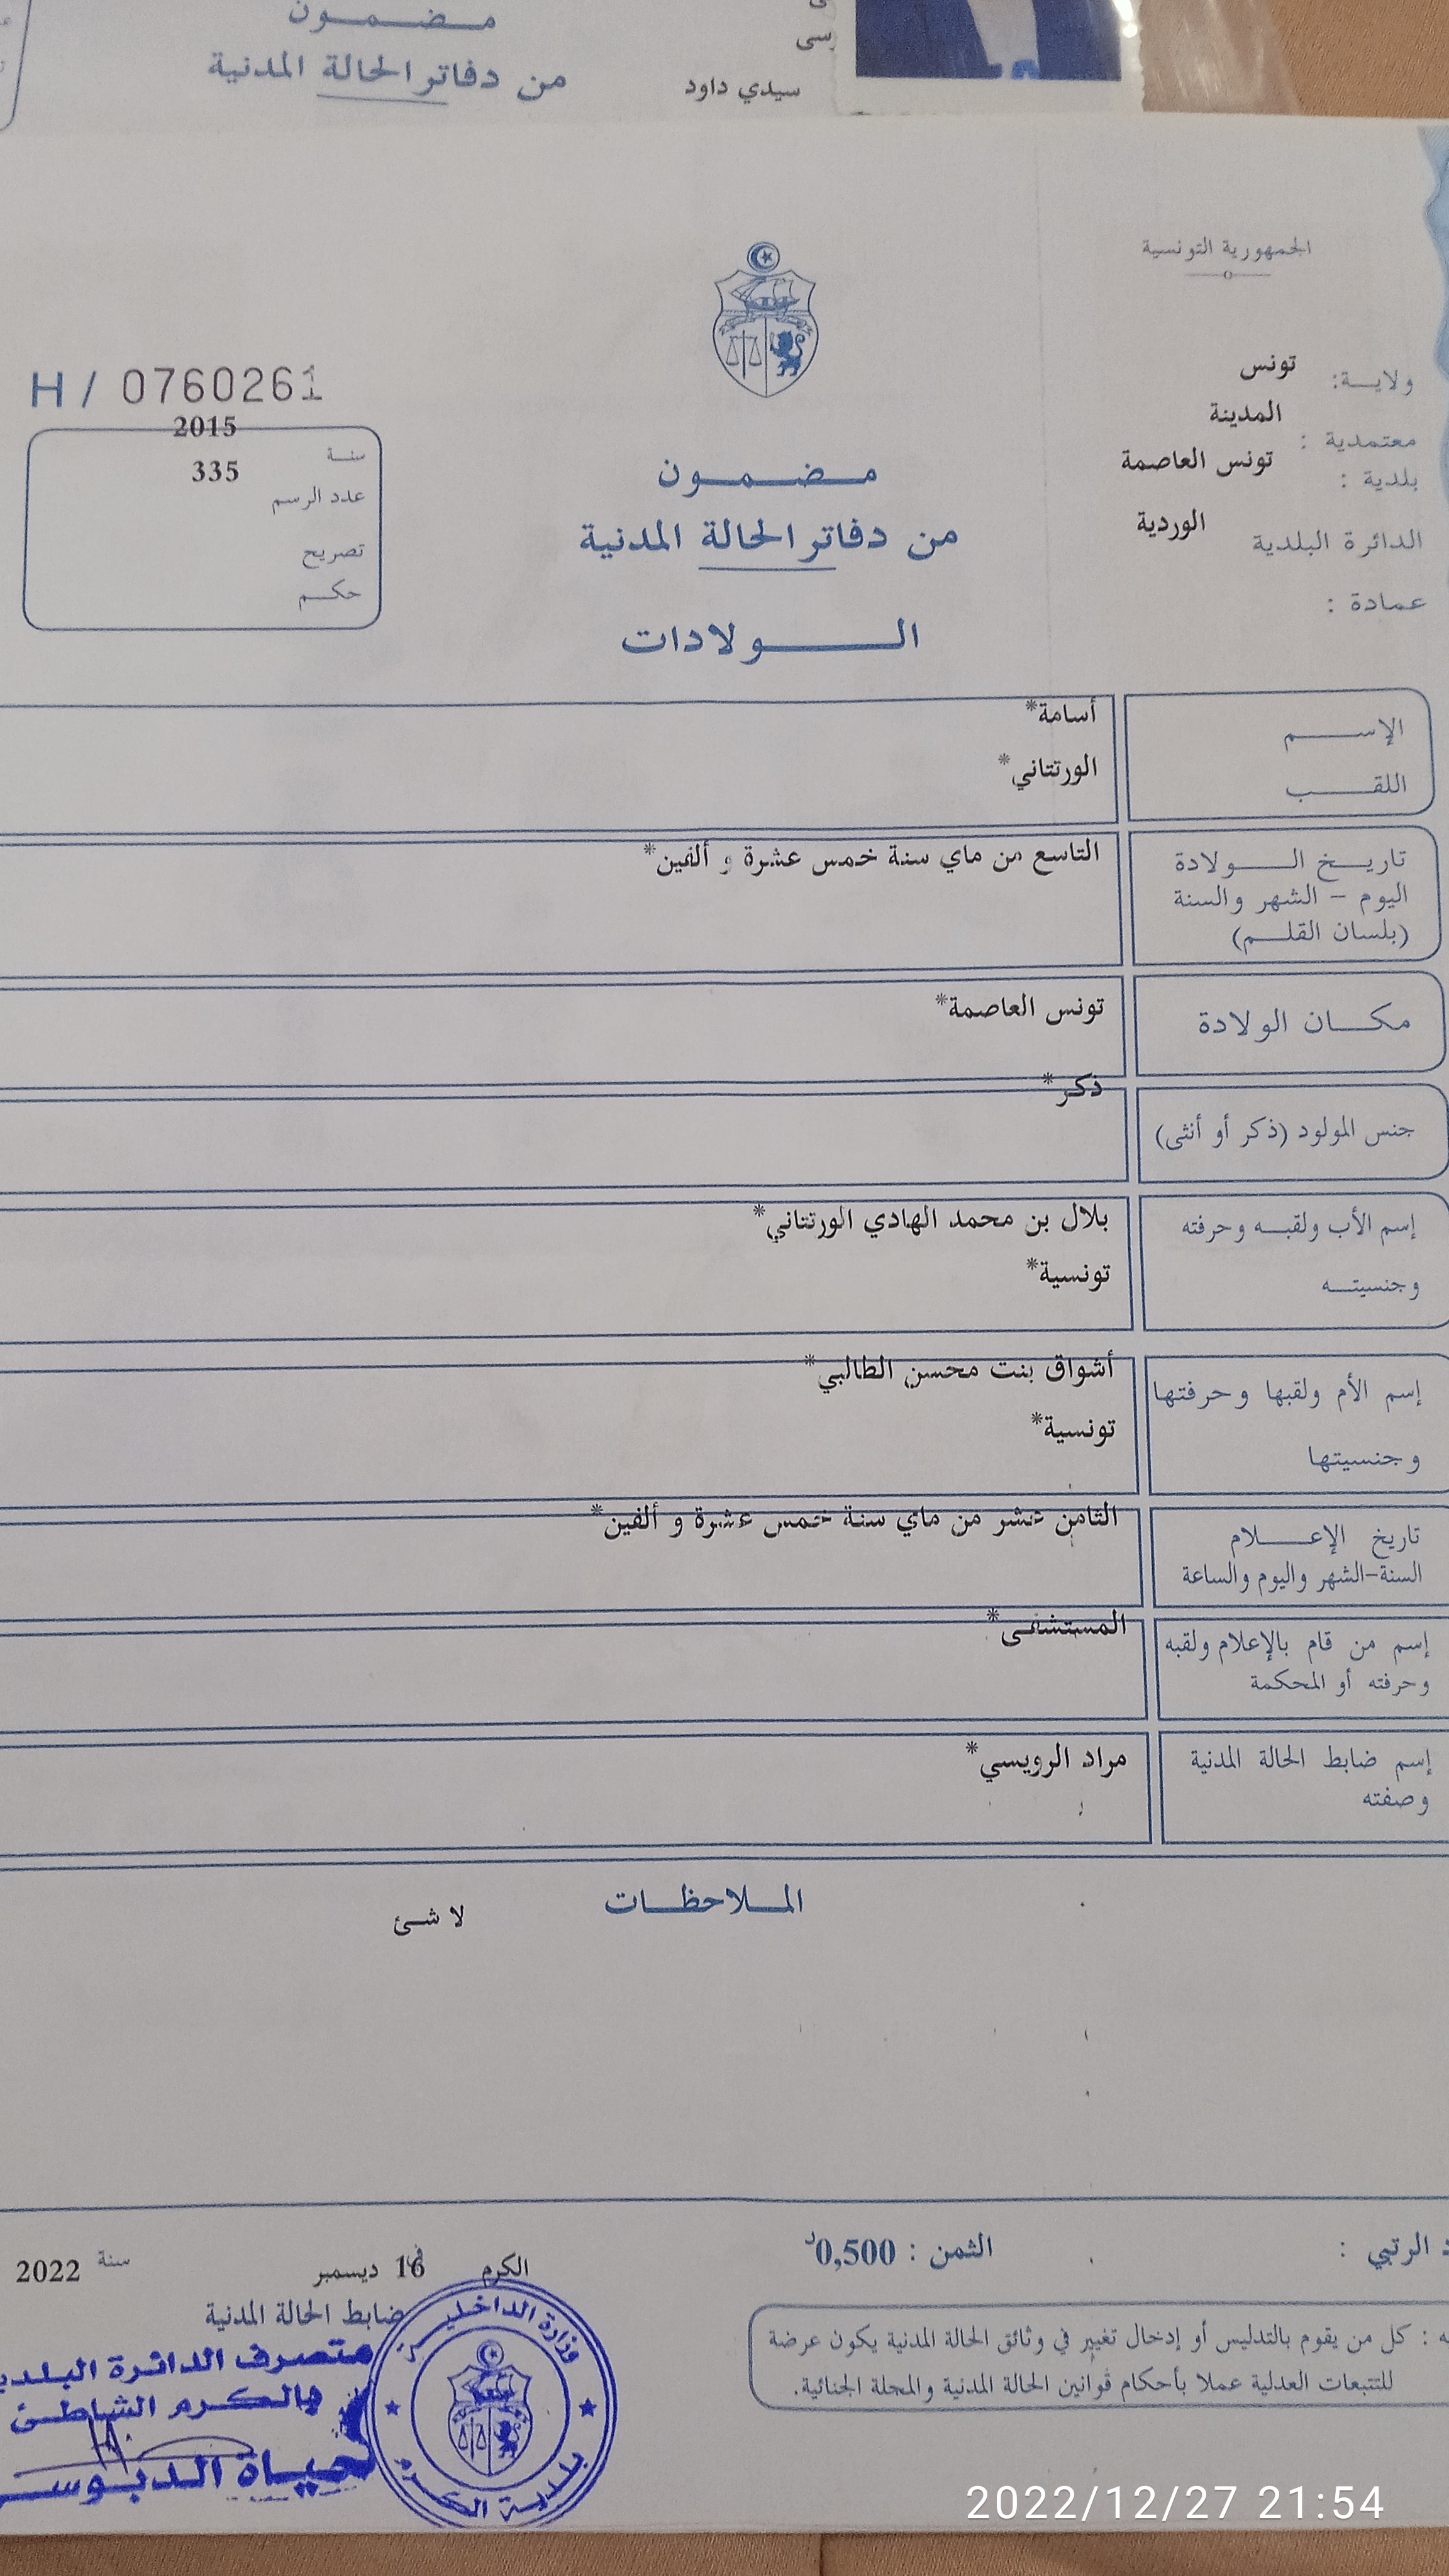 مضمون
من دفاتر الحالة المدنية
سيدي داود
الجمهورية التونسية
ولاية: تونس
معتمدية : المدينة
بلدية : تونس العاصمة
الدائرة البلدية الوردية
عمادة :
H / 0760261
سنة 2015
عدد الرسم 335
تصريح
حكم
مضمون
من دفاتر الحالة المدنية
الولادات
الإسم أسامة*
اللقب الورتتاني*
تاريخ الولادة التاسع من ماي سنة خمس عشرة و ألفين*
اليوم - الشهر والسنة
(بلسان القلم)
مكان الولادة تونس العاصمة*
جنس المولود (ذكر أو أنثى) ذكر*
إسم الأب ولقبه وحرفته بلال بن محمد الهادي الورتتاني*
وجنسيته تونسية*
إسم الأم ولقبها وحرفتها أشواق بنت محسن الطالبي*
وجنسيتها تونسية*
تاريخ الإعلام الثامن عشر من ماي سنة خمس عشرة و ألفين*
السنة-الشهر واليوم والساعة
إسم من قام بالإعلام ولقبه المستشفى*
وحرفته أو المحكمة
إسم ضابط الحالة المدنية مراد الرويسي*
وصفته
الملاحظات
لا شئ
الرتبي :
الثمن : 0,500د
الكرم في 16 ديسمبر سنة 2022
ضابط الحالة المدنية
متصرف الدائرة البلدية
بالكرم الشاطئ
حياة الدبوسي
وزارة الداخلية
بلدية الكرم
: كل من يقوم بالتدليس أو إدخال تغيير في وثائق الحالة المدنية يكون عرضة
للتتبعات العدلية عملا بأحكام قوانين الحالة المدنية والمجلة الجنائية.
2022/12/27 21:54